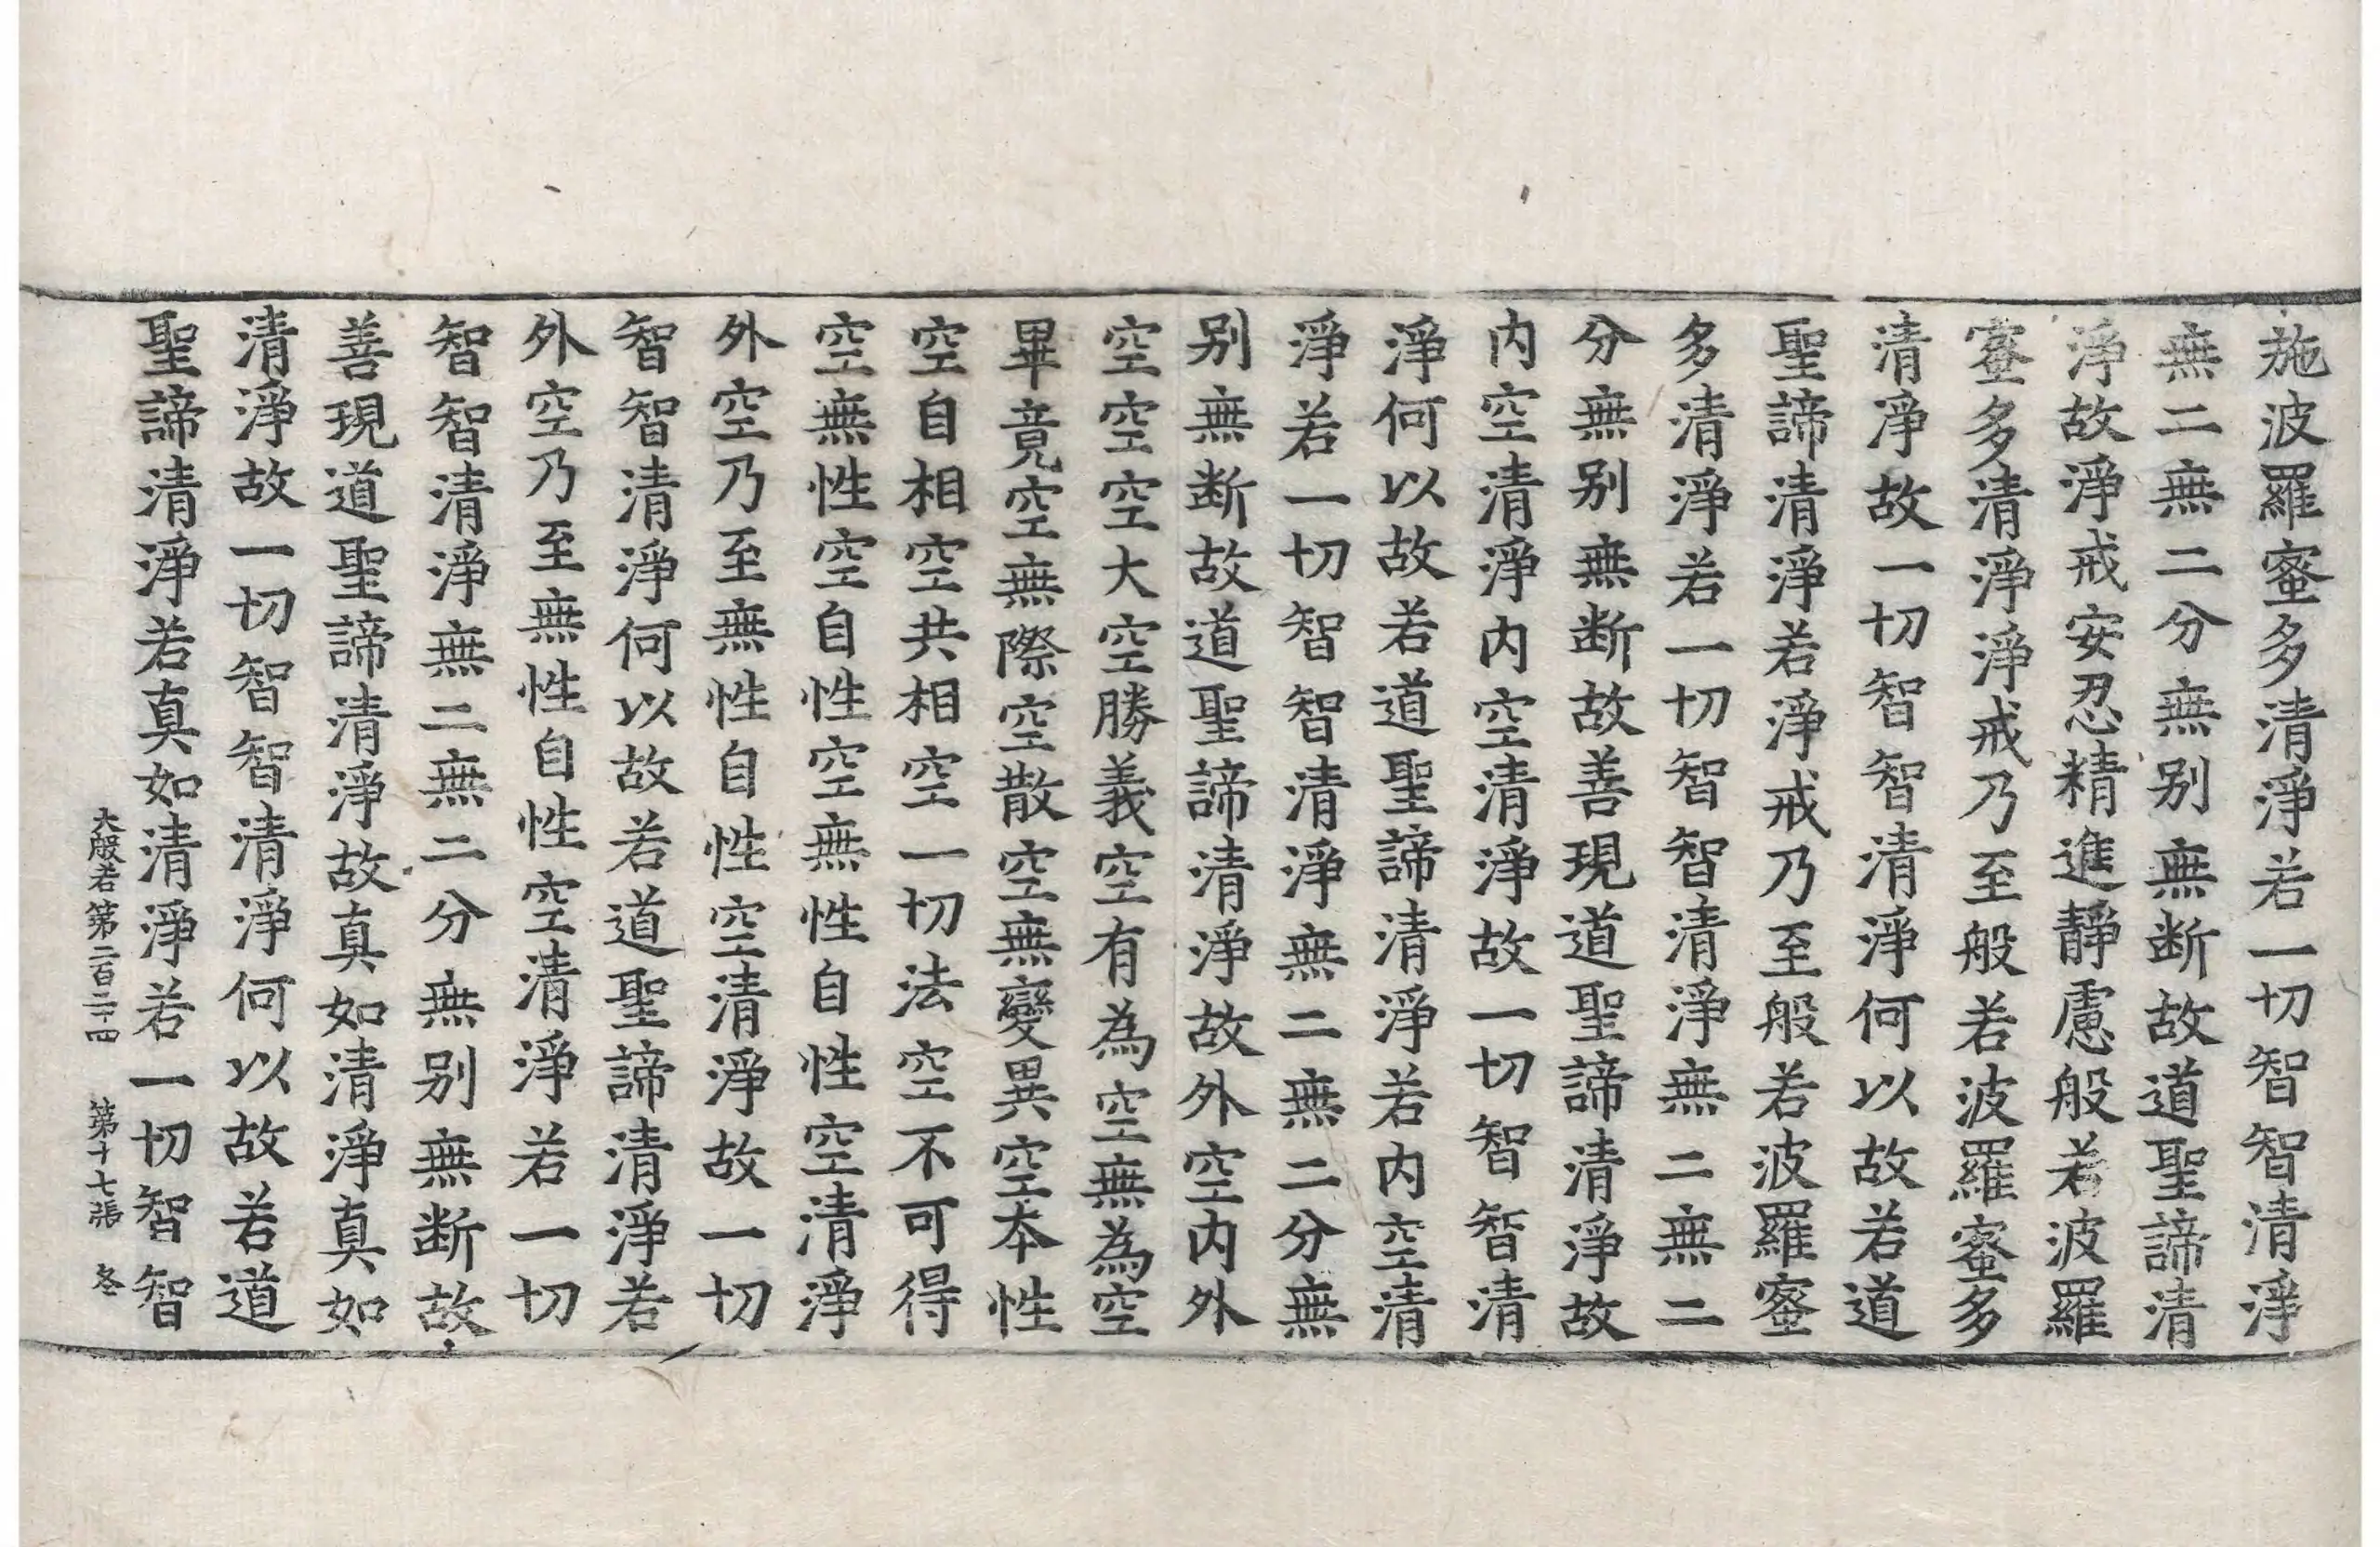 施波羅蜜多清淨若一切智智清淨
無二無二分無别無断故道聖諦清
淨故淨戒安忍精進靜慮般若波羅
蜜多清淨淨戒乃至般若波羅蜜多
清淨故一切智智清淨何以故若道
聖諦清淨若淨戒乃至般若波羅蜜
多清淨若一切智智清淨無二無二
分無别無断故善現道聖諦清淨故
内空清淨内空清淨故一切智智清
淨何以故若道聖諦清淨若内空清
淨若一切智智清淨無二無二分無
别無断故道聖諦清淨故外空内外
空空空大空勝義空有為空無為空
畢竟空無際空散空無變異空本性
空自相空共相空一切法空不可得
空無性空自性空無性自性空清淨
外空乃至無性自性空清淨故一切
智智清淨何以故若道聖諦清淨若
外空乃至無性自性空清淨若一切
智智清淨無二無二分無别無断故
善現道聖諦清淨故真如清淨真如
清淨故一切智智清淨何以故若道
聖諦清淨若真如清淨若一切智智
大般若第二百三十四 第十七張 冬